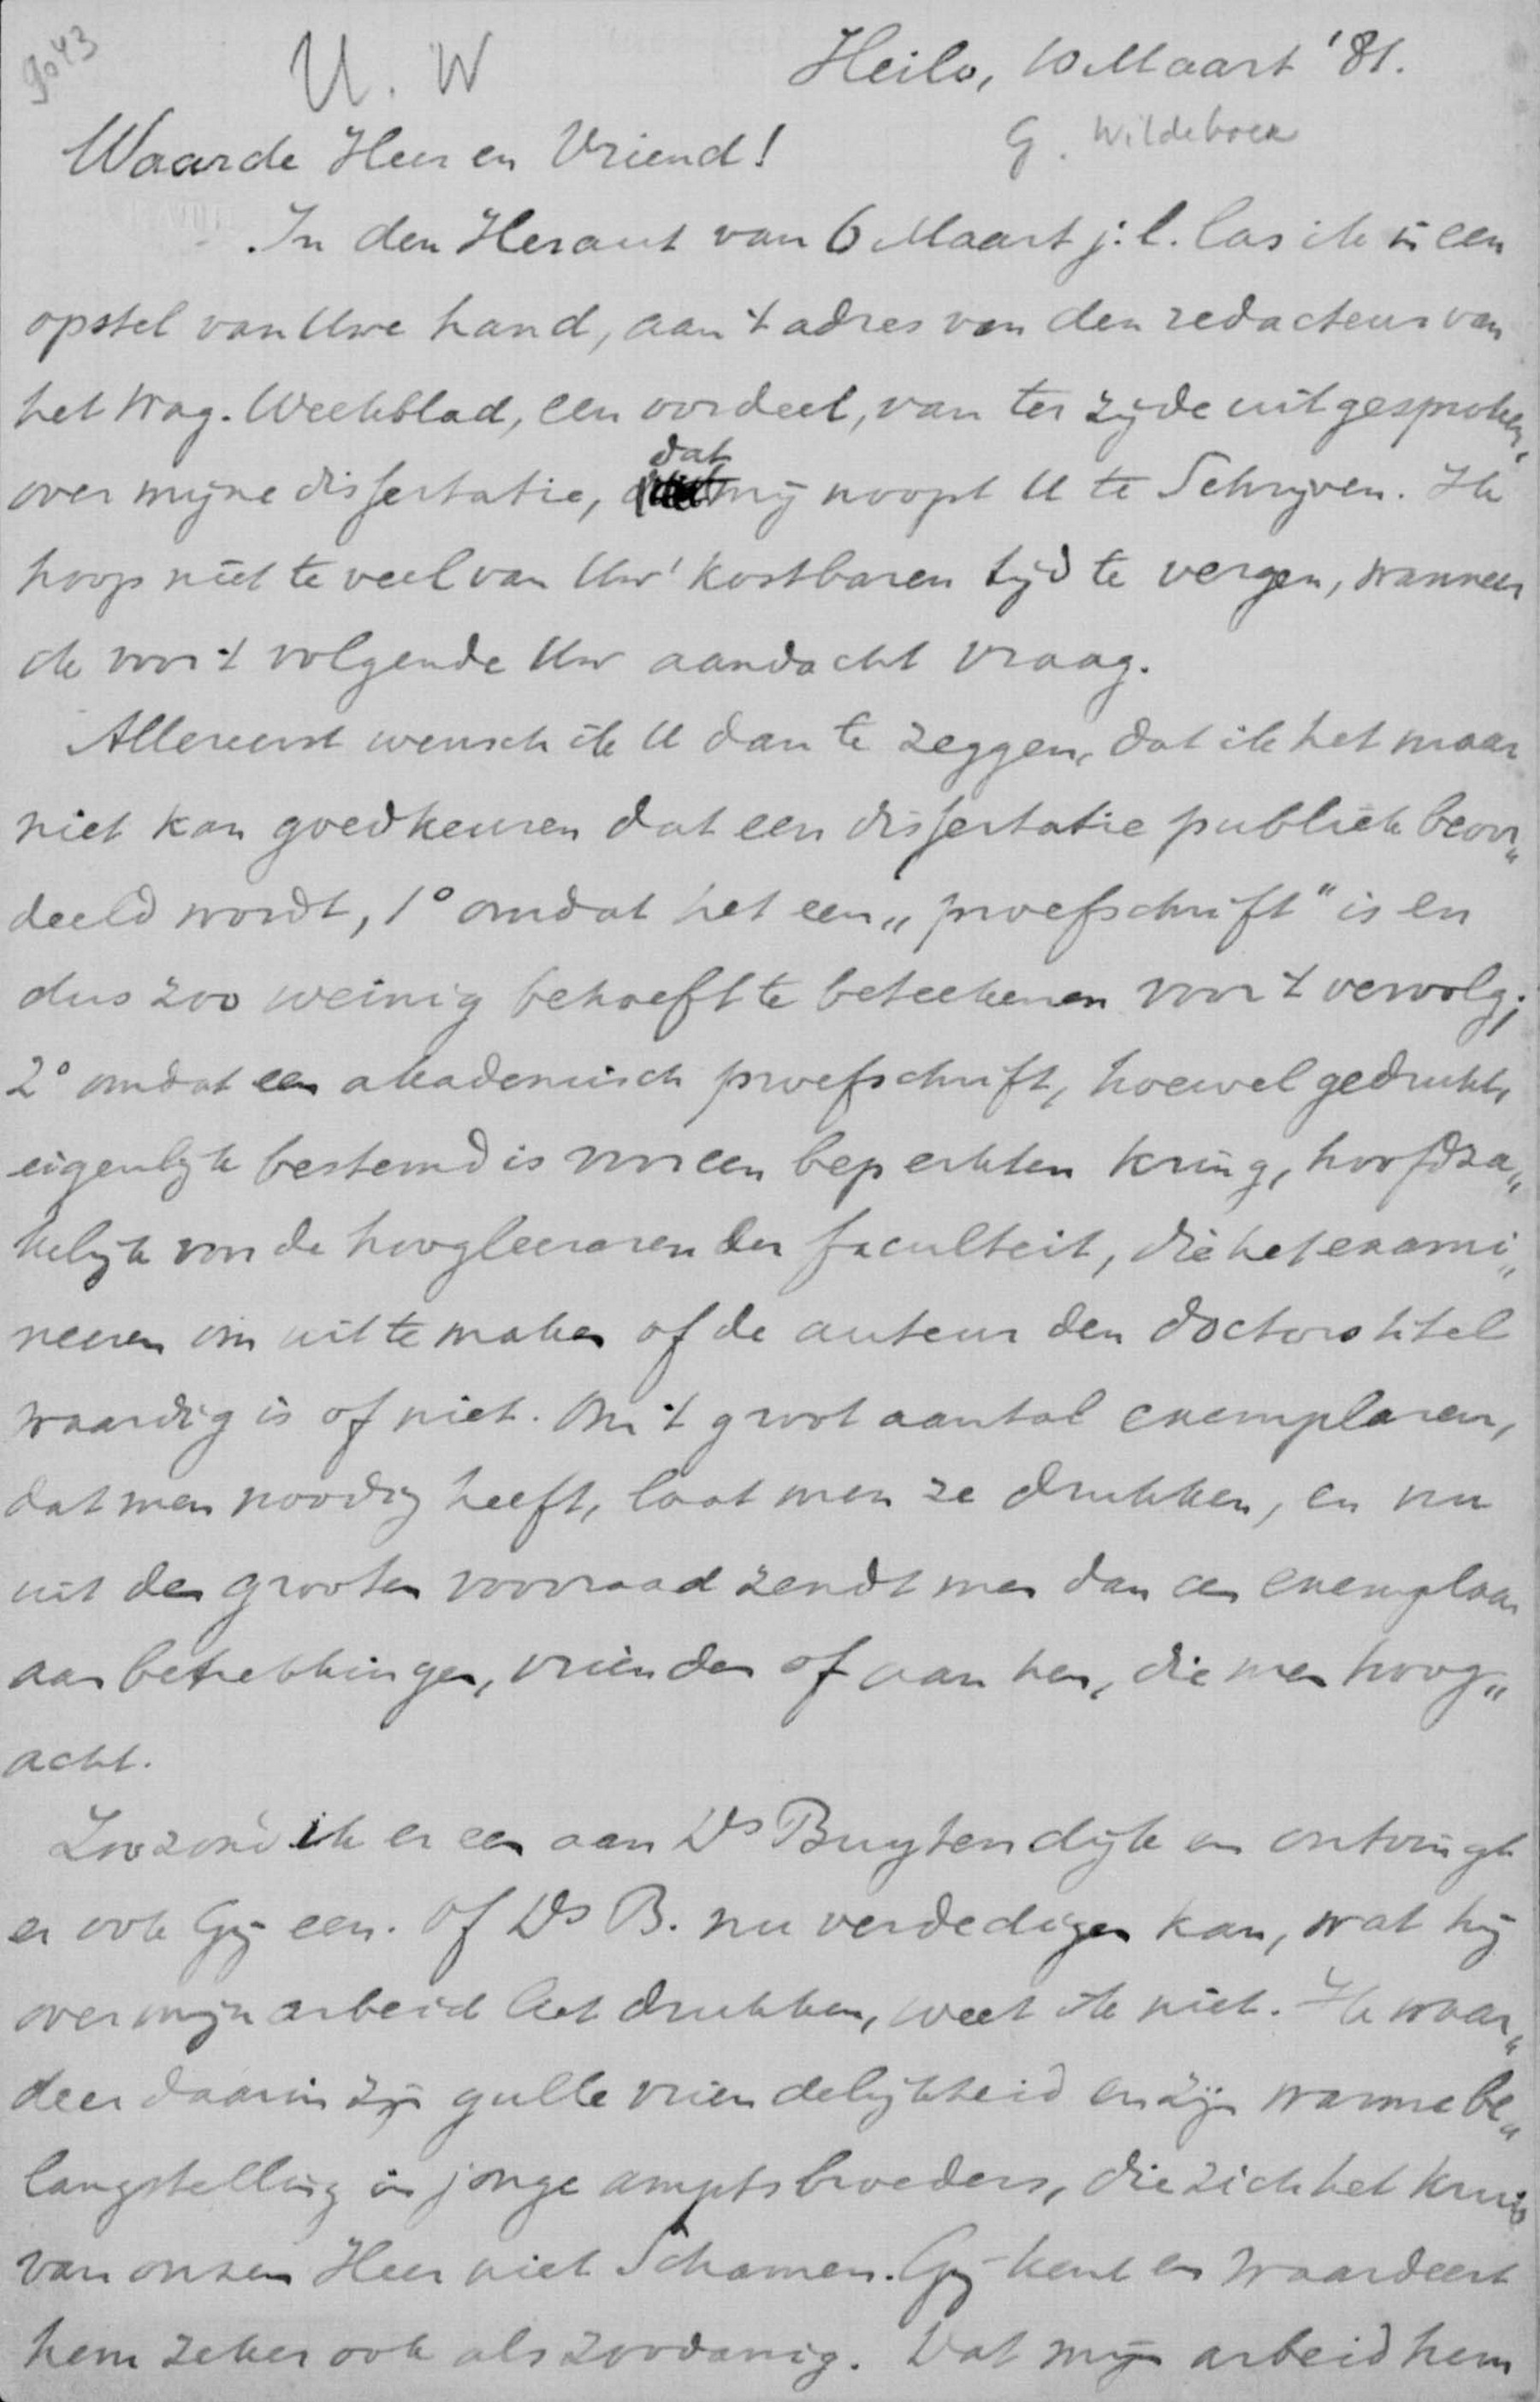 9043
U. W
Heilo, 10 Maart '81.
G. Wildeboer
Waarde Heer en Vriend!
In den Heraut van 6 Maart j.l. las ik in een
opstel van Uwe hand, aan 't adres van den redacteur van
het Wag. Weekblad, een oordeel, van ter zijde uitgesproken,
over mijne dissertatie, dat mij noopt U te schrijven. Ik
hoop niet te veel van Uw' kostbaren tijd te vergen, wanneer
ik voor 't volgende Uw aandacht vraag.
Allereerst wensch ik U dan te zeggen, dat ik het maar
niet kan goedkeuren dat een dissertatie publiek beoor„
deeld wordt, 1° omdat het een „proefschrift" is en
dus zoo weinig behoeft te beteekenen voor 't vervolg;
2° omdat een akademisch proefschrift, hoewel gedrukt,
eigenlijk bestemd is voor een beperkten kring, hoofdza„
kelijk voor de hoogleeraren der faculteit, die het exami„
neeren om uit te maken of de auteur den doctorstitel
waardig is of niet. Om 't groot aantal exemplaren,
dat men noodig heeft, laat men ze drukken, en nu
uit den grooten voorraad zendt men dan een exemplaar
aan betrekkingen, vrienden of aan hen, die men hoog„
acht.
Zoo zond ik er een aan Ds Buytendijk en ontvingt
er ook Gij een. Of Ds B. nu verdedigen kan, wat hij
over mijn arbeid liet drukken, weet ik niet. Ik waar„
deer daarin zijn gulle vriendelijkheid en zijn warme be„
langstelling in jonge amptsbroeders, die zich het kruis
van onzen Heer niet schamen. Gij kent en waardeert
hem zeker ook als zoodanig. Dat mijn arbeid hem